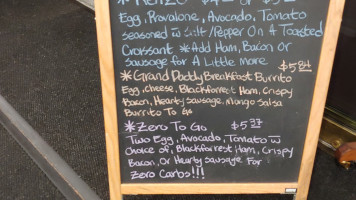 Egg, Provalone, Avocado, Tomato
seasoned w Salt/Pepper On A Toasted
Croissant *Add Ham, Bacon Or
Sausage For A Little More
$5.84
*Grand Daddy Breakfast Burrito
Egg, cheese, Blackforrest Ham, Crispy
Bacon, Hearty Sausage, Mango Salsa
Burrito To Go
*Zero To Go $5.37
Two Egg, Avocado, Tomato w
Choice of, Blackforrest Ham, Crispy
Bacon, Or Hearty Sausage For
Zero Carbs!!!